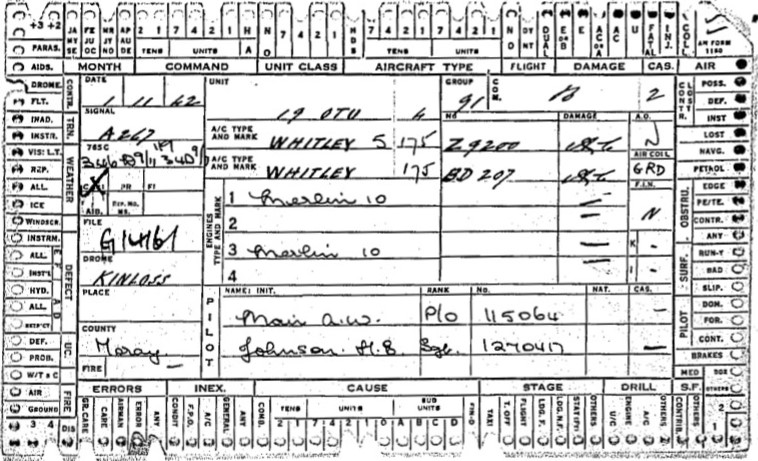 +3 +2 JA FE MR AP 2 1 7 4 2 1 H N 7 4 2 1 H 7 4 2 1 7 4 2 1 N DY DUAL E A AC U F INJ. COLL
PARAS. NY SE JU OC JY NO AU DE TENS UNITS A O D S TENS UNITS D NT OR B OR A FATAL AM FORM 1180
AIDS. MONTH COMMAND UNIT CLASS AIRCRAFT TYPE FLIGHT DAMAGE CAS. AIR
DROME. CONTR. DATE UNIT GROUP COM. CONTR. CLOST POSS.
FLT. 1 11 42 19 OTU 4 91 B 2 DEF.
INAD. TRN. SIGNAL A/C TYPE AND MARK NO DAMAGE A.O. INST
INSTR. A267 WHITLEY 5 175 Z9200 N LOST
VIS: L.T. WEATHER 765C A/C TYPE AND MARK AIR COLL NAVG.
REP. WHITLEY 175 BD 207 GRD PETROL
ALL. PR FI F.I.N. EDGE
ICE AID. ENGINES TYPE AND MARK 1 Merlin 10 OBSTRU. PE/TE.
WINDSCR. FILE 2 N CONTR.
INSTRN. G14161 3 Merlin 10 K - ANY
ALL. DEFECT DROME 4 I - SURF. RUN-Y
INST'L KINLOSS BAD
HYD. PLACE PILOT NAME: INIT. RANK No. NAT. CAS. SLIP.
ALL. Main A.W. P/O 115064 - PILOT DOM.
COUNTY FOR.
DEF. UC. Moray Johnson. H.B. Sgt. 1270417 - CONT.
PROB. FIRE - BRAKES
W/T & C MED
AIR FIRE ERRORS INEX. CAUSE STAGE DRILL S.F. OTHERS
GROUND GR. CARE CARE AIRMAN ERROR ANY CONDIT F.P.O. A/C GENERAL ANY COMB. TENS UNITS SUB UNITS FIN-O TAXI T. OFF FLIGHT LOG. F. LOG. N.F. STATUTY OTHERS U/C ENGINE A/C OTHERS CONTRIB OTHERS 2
3 4 DIS 2 1 7 4 2 1 0 A B C D 1